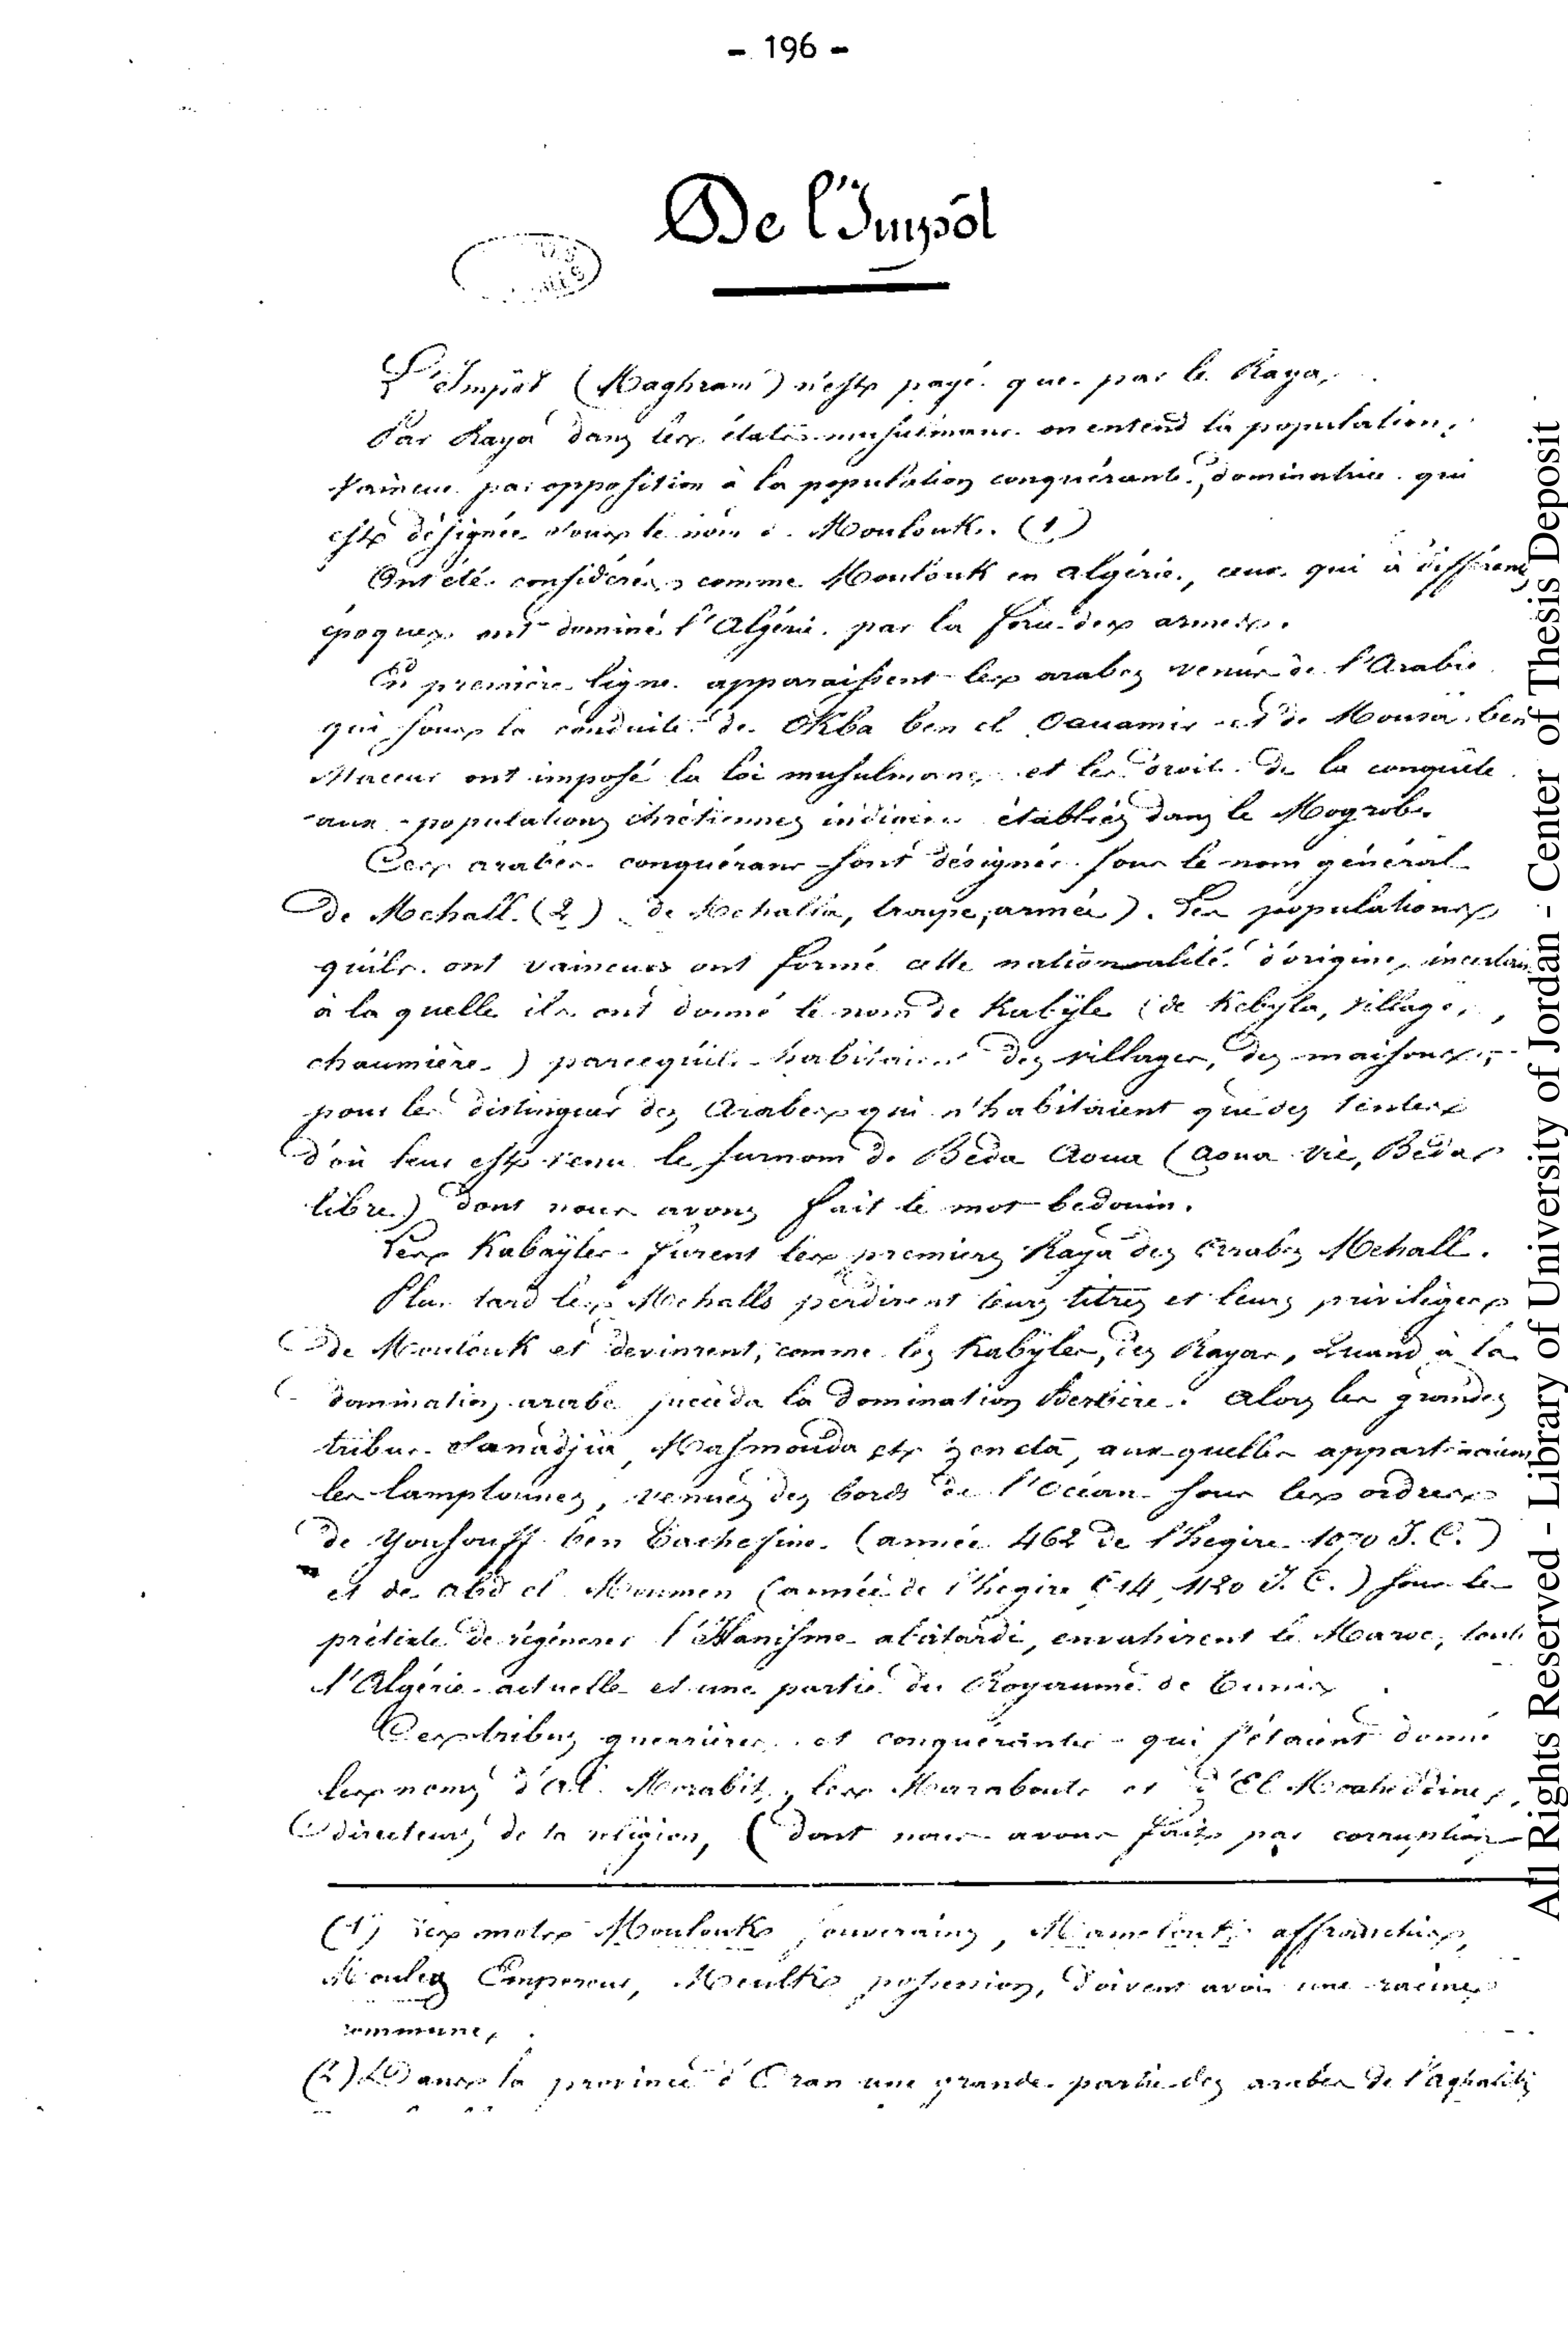 - 196 -
De l'Impôt
L'Impôt (Maghram) n'est payé que par le Raya,
Par Raya dans les états musulmans on entend la population
vaincue par opposition à la population conquérante, dominatrice qui
est désignée sous le nom de Moulouk. (1)
Ont été considérés comme Moulouk en algérie, ceux qui à différents
époques ont dominé l'Algérie par la force des armes.
En première ligne apparaissent les arabes venus de l'Arabie
qui sous la conduite de Okba ben el Oauamir et de Moussa ben
Naceur ont imposé la loi musulmane et les droits de la conquête
aux populations chrétiennes indigènes établies dans le Mogrob.
Ces arabes conquérans sont désignés sous le nom général
de Mehall (2) de Mehalla, troupe, armée). Les populations
qu'ils ont vaincues ont formé cette nationalité d'origine incertaine
à la quelle ils ont donné le nom de Kabÿle (de Kebyla, village,
chaumière) parcequ'ils habitaient des villages, des maisons,
pour les distinguer des Arabes qui n'habitaient que des tentes
d'où leur est venu le surnom de Béda Aoua (Aoua vie, Béda
libre) dont nous avons fait le mot bedouin.
Les Kabaÿles furent les premiers Raya des Arabes Mehall.
Plus tard les Mehalls perdirent leurs titres et leurs privilèges
de Moulouk et devinrent, comme les Kabÿles, des Rayas, Quand à la
domination arabe succéda la domination Berbère. Alors les grandes
tribus Sanadjia, Masmouda et Zeneta, aux quelles appartenaient
les lamptounes, venues des bords de l'Océan sous les ordres
de Youssouff ben Tachefine (année 462 de l'hegire 1070 J. C.)
et de Abd el Moumen (année de l'hegire 514, 1120 J. C.) sous le
prétexte de régénerer l'Islanisme abâtardi, envahirent le Maroc, toute
l'Algérie actuelle et une partie du Royaume de Tunis
Ces tribus guerrières et conquérantes qui s'étaient donné
les noms d'Al Morabit, les Marabouts et d'El Mouaheddine,
directeurs de la religion, (dont nous avons fait par corruption
(1) Les mots Moulouk souverains, Mamelouk affranchis,
Mouley Empereur, Meulk possession, doivent avoir une racine
commune,
(2) Dans la province d'Oran une grande partie des arabes de l'aghalik
All Rights Reserved - Library of University of Jordan - Center of Thesis Deposit